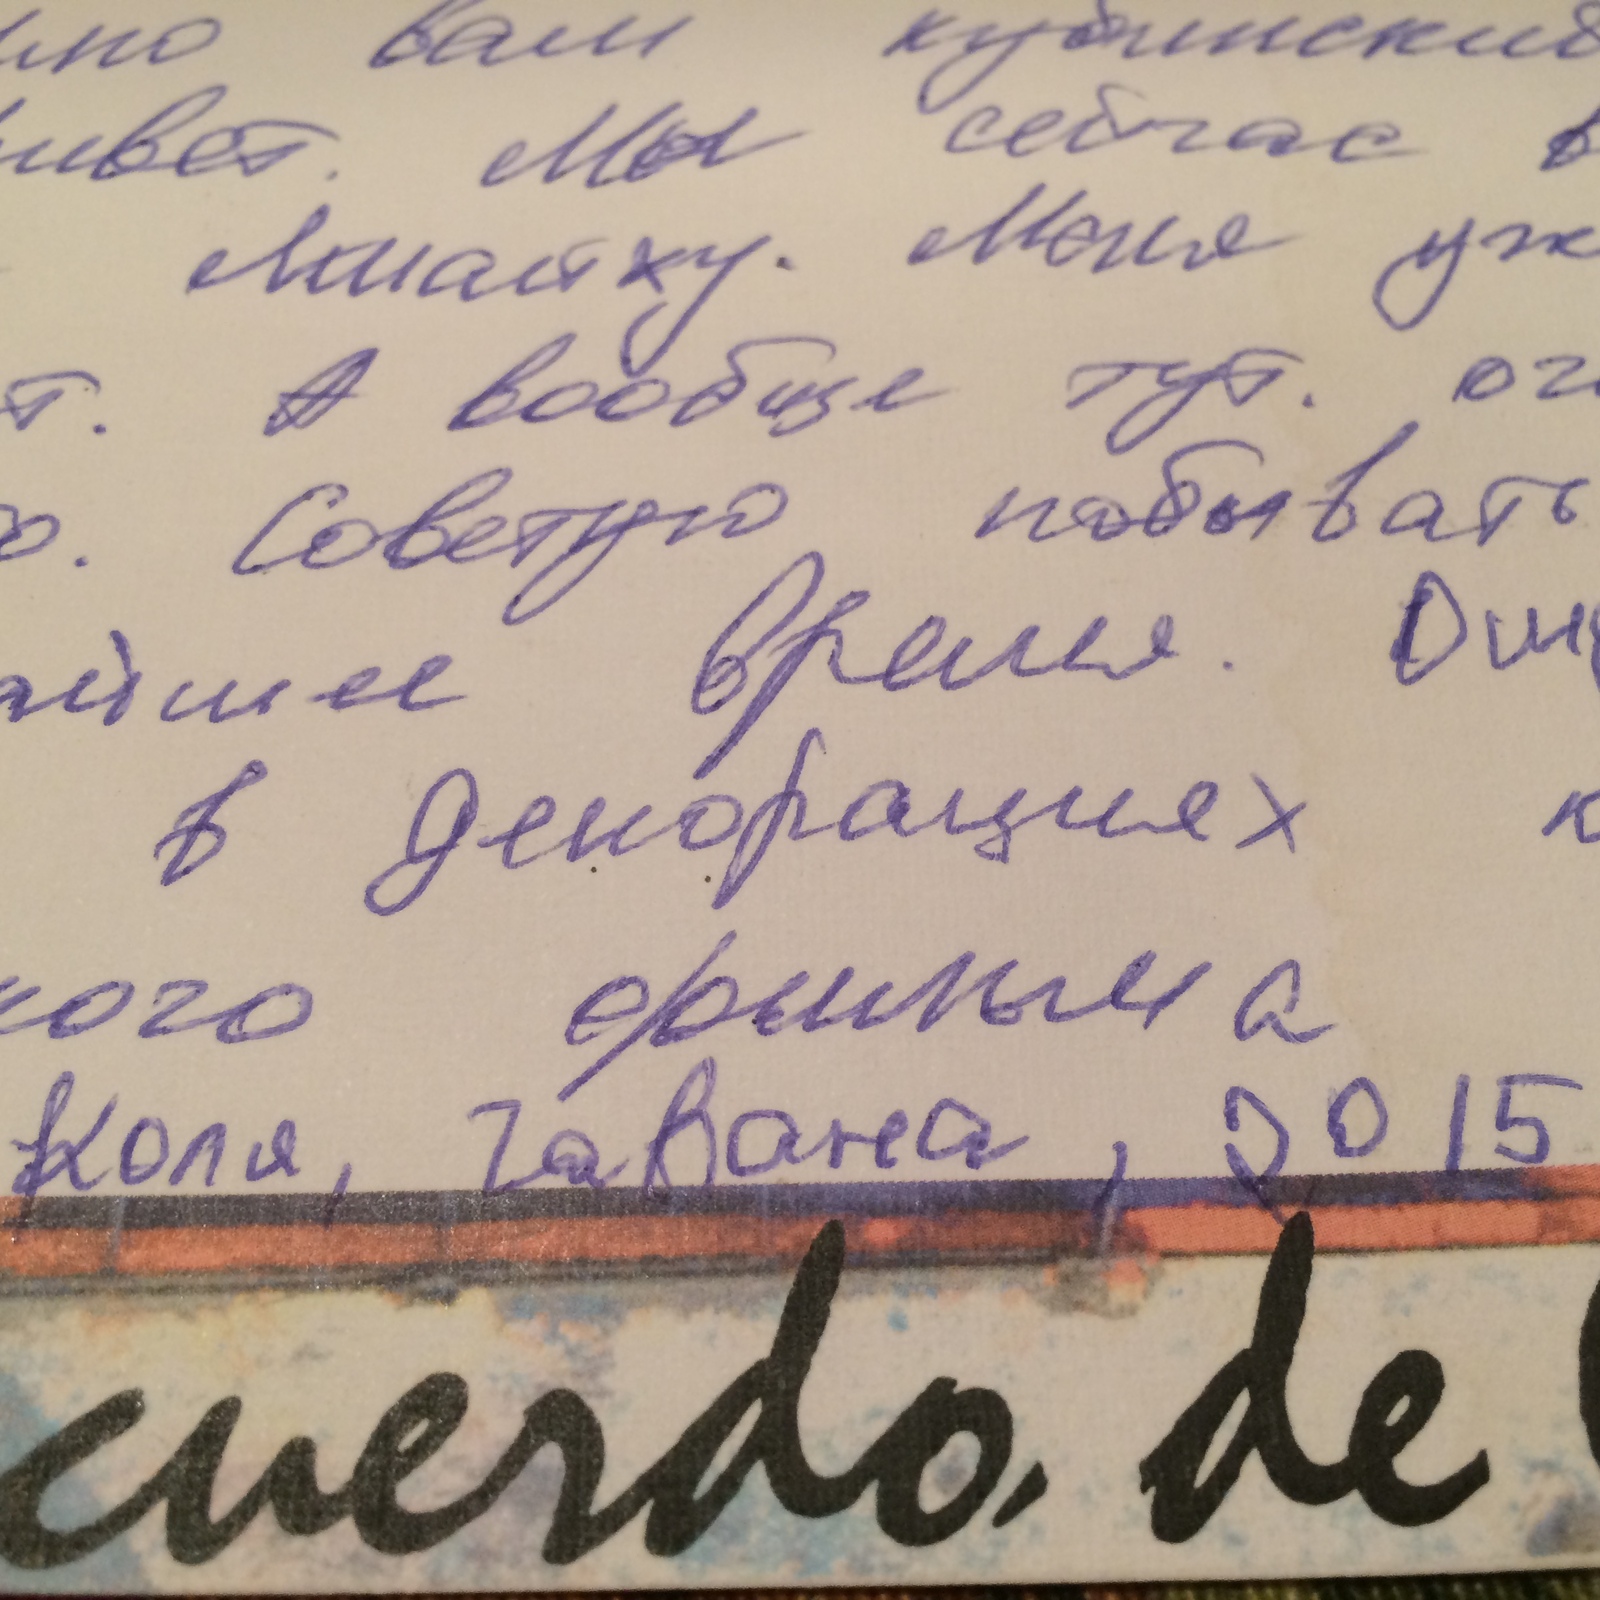 ино вам кубинский
ривет. Мы сейчас в
Минтху. Меня уж
т. А вообще тут. оч
о. Советую побывать
айшее время. Ощу
в декорациях к
кого фильма
Коля, гавана, 2015
cuerdo, de